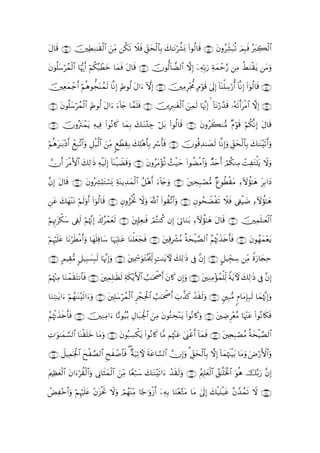 ٱلْكِبَرُ فَبِمَ تُبَشِّرُونَ ۝ قَالُوا۟ بَشَّرْنَٰكَ بِٱلْحَقِّ فَلَا تَكُن مِّنَ ٱلْقَٰنِطِينَ ۝ قَالَ
وَمَن يَقْنَطُ مِن رَّحْمَةِ رَبِّهِۦٓ إِلَّا ٱلضَّآلُّونَ ۝ قَالَ فَمَا خَطْبُكُمْ أَيُّهَا ٱلْمُرْسَلُونَ
۝ قَالُوٓا۟ إِنَّآ أُرْسِلْنَآ إِلَىٰ قَوْمٍ مُّجْرِمِينَ ۝ إِلَّآ ءَالَ لُوطٍ إِنَّا لَمُنَجُّوهُمْ أَجْمَعِينَ
۝ إِلَّا ٱمْرَأَتَهُۥ قَدَّرْنَآ ۙ إِنَّهَا لَمِنَ ٱلْغَٰبِرِينَ ۝ فَلَمَّا جَآءَ ءَالَ لُوطٍ ٱلْمُرْسَلُونَ
۝ قَالَ إِنَّكُمْ قَوْمٌ مُّنكَرُونَ ۝ قَالُوا۟ بَلْ جِئْنَٰكَ بِمَا كَانُوا۟ فِيهِ يَمْتَرُونَ ۝
وَأَتَيْنَٰكَ بِٱلْحَقِّ وَإِنَّا لَصَٰدِقُونَ ۝ فَأَسْرِ بِأَهْلِكَ بِقِطْعٍ مِّنَ ٱلَّيْلِ وَٱتَّبِعْ أَدْبَٰرَهُمْ
وَلَا يَلْتَفِتْ مِنكُمْ أَحَدٌ وَٱمْضُوا۟ حَيْثُ تُؤْمَرُونَ ۝ وَقَضَيْنَآ إِلَيْهِ ذَٰلِكَ ٱلْأَمْرَ أَنَّ
دَابِرَ هَٰٓؤُلَآءِ مَقْطُوعٌ مُّصْبِحِينَ ۝ وَجَآءَ أَهْلُ ٱلْمَدِينَةِ يَسْتَبْشِرُونَ ۝ قَالَ إِنَّ
هَٰٓؤُلَآءِ ضَيْفِى فَلَا تَفْضَحُونِ ۝ وَٱتَّقُوا۟ ٱللَّهَ وَلَا تُخْزُونِ ۝ قَالُوٓا۟ أَوَلَمْ نَنْهَكَ عَنِ
ٱلْعَٰلَمِينَ ۝ قَالَ هَٰٓؤُلَآءِ بَنَاتِىٓ إِن كُنتُمْ فَٰعِلِينَ ۝ لَعَمْرُكَ إِنَّهُمْ لَفِى سَكْرَتِهِمْ
يَعْمَهُونَ ۝ فَأَخَذَتْهُمُ ٱلصَّيْحَةُ مُشْرِقِينَ ۝ فَجَعَلْنَا عَٰلِيَهَا سَافِلَهَا وَأَمْطَرْنَا عَلَيْهِمْ
حِجَارَةً مِّن سِجِّيلٍ ۝ إِنَّ فِى ذَٰلِكَ لَءَايَٰتٍ لِّلْمُتَوَسِّمِينَ ۝ وَإِنَّهَا لَبِسَبِيلٍ مُّقِيمٍ
۝ إِنَّ فِى ذَٰلِكَ لَءَايَةً لِّلْمُؤْمِنِينَ ۝ وَإِن كَانَ أَصْحَٰبُ ٱلْأَيْكَةِ لَظَٰلِمِينَ ۝ فَٱنتَقَمْنَا مِنْهُمْ
وَإِنَّهُمَا لَبِإِمَامٍ مُّبِينٍ ۝ وَلَقَدْ كَذَّبَ أَصْحَٰبُ ٱلْحِجْرِ ٱلْمُرْسَلِينَ ۝ وَءَاتَيْنَٰهُمْ ءَايَٰتِنَا
فَكَانُوا۟ عَنْهَا مُعْرِضِينَ ۝ وَكَانُوا۟ يَنْحِتُونَ مِنَ ٱلْجِبَالِ بُيُوتًا ءَامِنِينَ ۝ فَأَخَذَتْهُمُ
ٱلصَّيْحَةُ مُصْبِحِينَ ۝ فَمَآ أَغْنَىٰ عَنْهُم مَّا كَانُوا۟ يَكْسِبُونَ ۝ وَمَا خَلَقْنَا ٱلسَّمَٰوَٰتِ
وَٱلْأَرْضَ وَمَا بَيْنَهُمَآ إِلَّا بِٱلْحَقِّ ۗ وَإِنَّ ٱلسَّاعَةَ لَءَاتِيَةٌ ۖ فَٱصْفَحِ ٱلصَّفْحَ ٱلْجَمِيلَ
۝ إِنَّ رَبَّكَ هُوَ ٱلْخَلَّٰقُ ٱلْعَلِيمُ ۝ وَلَقَدْ ءَاتَيْنَٰكَ سَبْعًا مِّنَ ٱلْمَثَانِى وَٱلْقُرْءَانَ ٱلْعَظِيمَ
۝ لَا تَمُدَّنَّ عَيْنَيْكَ إِلَىٰ مَا مَتَّعْنَا بِهِۦٓ أَزْوَٰجًا مِّنْهُمْ وَلَا تَحْزَنْ عَلَيْهِمْ وَٱخْفِضْ